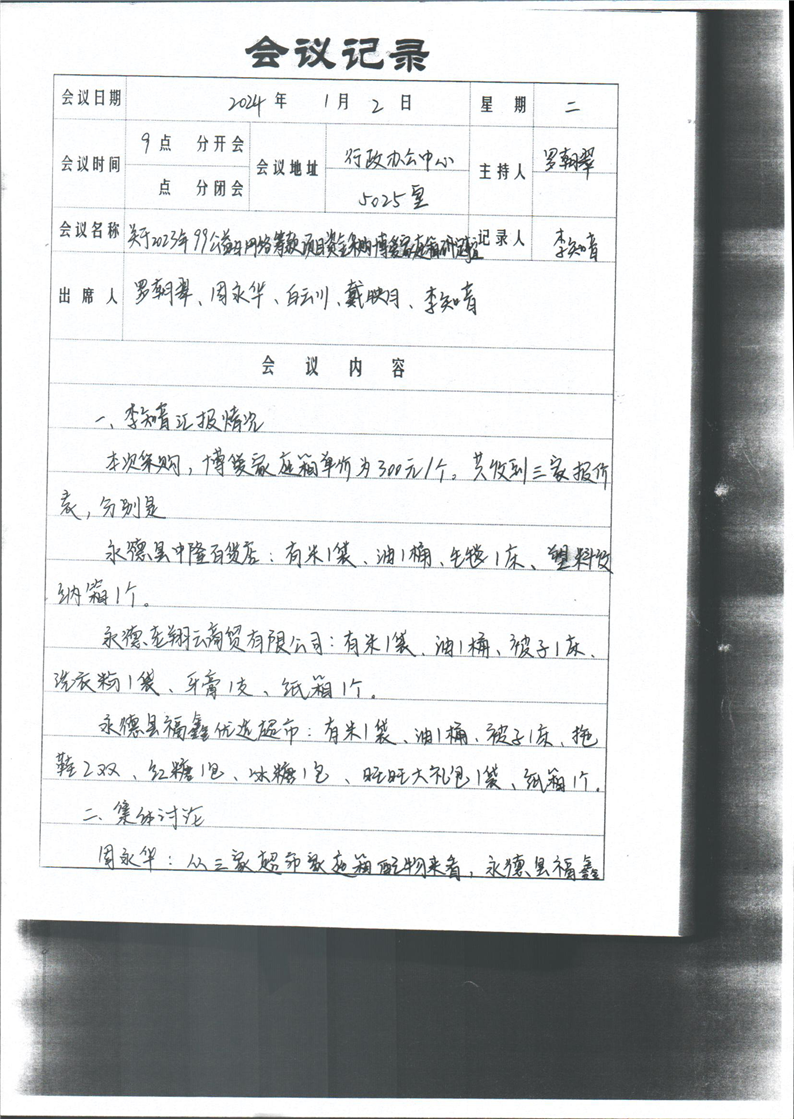 会议记录
会议日期 2024年 1月 2日 星期 二
会议时间 9点 分开会 会议地址 行政办公中心 主持人 罗朝翠
点 分闭会 5025室
会议名称 关于2023年99公益日网络筹款项目资金采购博爱家庭箱 记录人 李知音
出席人 罗朝翠、周永华、白云川、戴映月、李知音
会议内容
一、李知音汇报情况
本次采购,博爱家庭箱单价为300元/个。共收到三家报价
表,分别是
永德县中隆百货店:有米1袋、油1桶、毛毯1床、塑料收
纳箱1个。
永德龙翔云商贸有限公司:有米1袋、油1桶、被子1床、
洗衣粉1袋、牙膏1支、纸箱1个。
永德县福鑫优选超市:有米1袋、油1桶、被子1床、拖
鞋2双、红糖1包、冰糖1包、旺旺大礼包1袋、纸箱1个。
二、集体讨论
周永华:从三家超市家庭箱配物来看,永德县福鑫